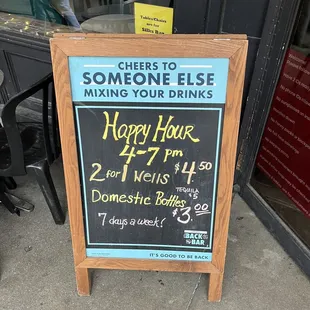 Tables/Chairs
are for
CHEERS TO
SOMEONE ELSE
MIXING YOUR DRINKS
Happy Hour
4-7 pm
2 for 1 Wells $4.50
TEQUILA
$5
Domestic Bottles $3.00
7 days a week!
BACK
BAR
IT'S GOOD TO BE BACK